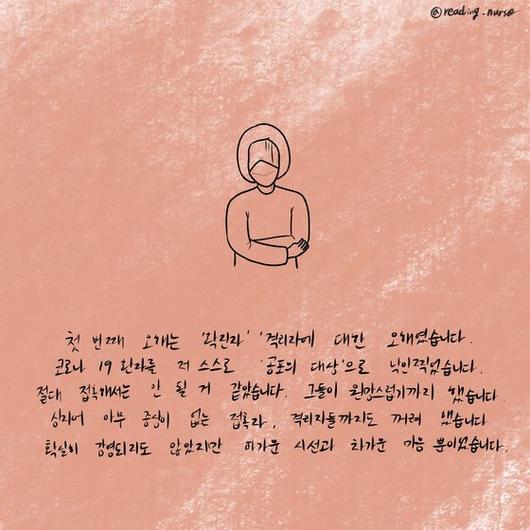 @reading_nurse
첫 번째 오해는 '확진자' '격리자'에 대한 오해였습니다.
코로나 19 환자를 저 스스로 '공포의 대상'으로 낙인찍었습니다.
절대 접촉해서는 안 될 거 같았습니다. 그들이 원망스럽기까지 했습니다.
심지어 아무 증상이 없는 접촉자, 격리자들까지도 꺼려 했습니다
확실히 감염되지도 않았지만 따가운 시선과 차가운 마음 뿐이었습니다.